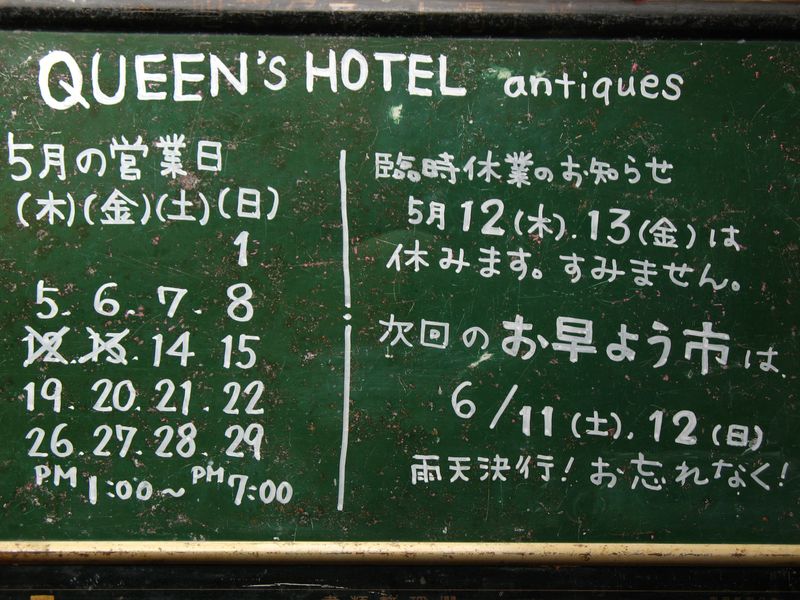 QUEEN'S HOTEL antiques
5月の営業日
(木)(金)(土)(日)
1
5. 6. 7. 8
12. 13. 14 15
19. 20. 21. 22
26. 27. 28. 29
PM 1:00～PM 7:00
臨時休業のお知らせ
5月12(木). 13(金)は
休みます。すみません。
次回のお早よう市は、
6/11(土). 12(日)
雨天決行! お忘れなく!